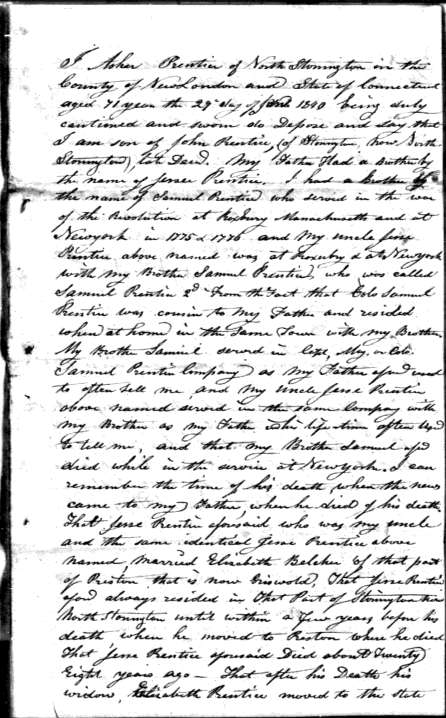 I Asher Prentice of North Stonington in the
County of New London and State of Connecticut
aged 71 years the 29th day of 1840 being duly
cautioned and sworn do Depose and Say, that
I am son of John Prentice, (of Stonington, now North
Stonington), late Decd. My Father Had a brother by
the name of Jesse Prentice. I had a Brother by
the name of Samuel Prentice who served in the war
of the Revolution at Roxbury Massachusetts and at
Newyork in 1775 & 1776 and My uncle Jesse
Prentice above named was at Roxbury & at Newyork
with my Brother Samuel Prentice, who was called
Samuel Prentice 2d From the Fact that Colo Samuel
Prentice was cousin to My Father and resided
when at home in the Same Town with my Brother
My Brother Samuel served in Capt, Maj, or Colo.
Samuel Prentice Company as My Father aforesd used
to often tell me, and My uncle Jesse Prentice
above named served in the same Company with
my Brother as my Father in his life time often Usd
to tell me, and that my Brother Samuel afsd
died while in the service at Newyork. I can
remember the time of his death when the news
came to my Father, when he died of his death,
That Jesse Prentice aforesaid who was my uncle
and the same identical Jesse Prentice above
named, Married Elizabeth Belcher of that part
of Preston that is now Griswold, That Jesse Prentice
aforsd always resided in That Part of Stonington
North Stonington until within a few years before his
death when he moved to Preston where he died
That Jesse Prentice aforesaid Died about Twenty
Eight years ago – That after his Death his
widow, Elizabeth Prentice moved to the State